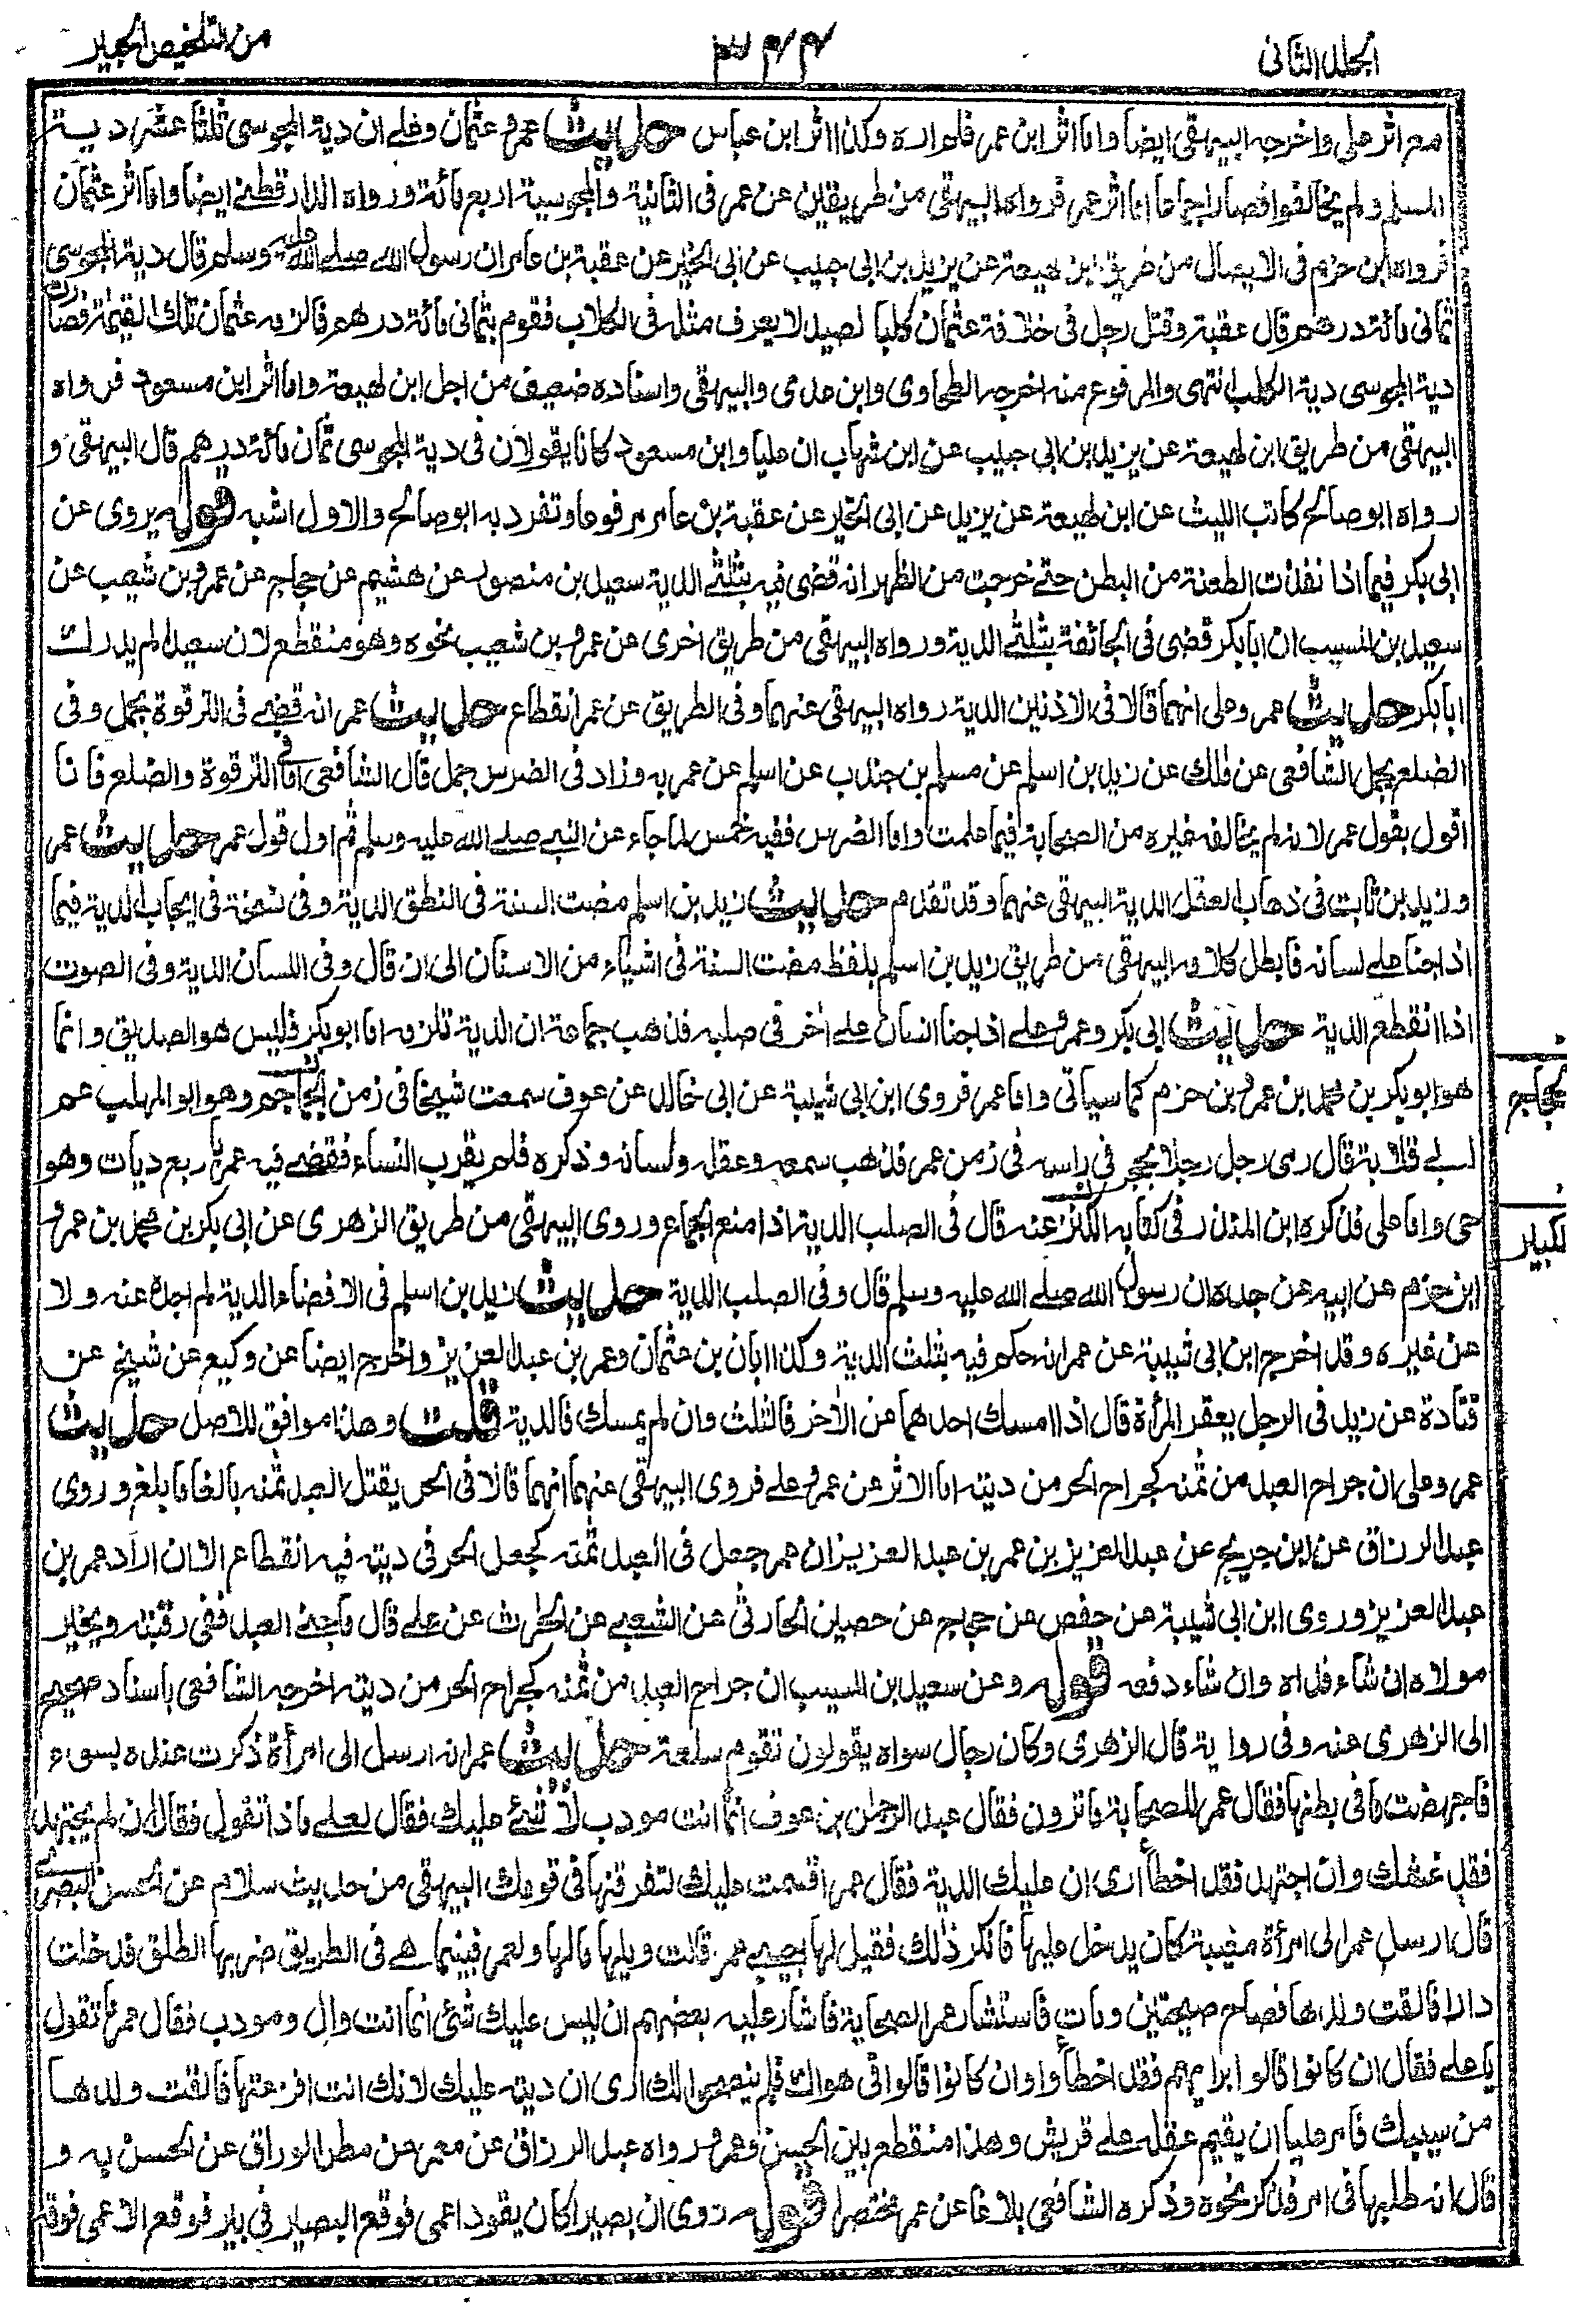 الجلد الثانى
٣٤٤
من التلخيص الحبير
مع اثر علي واخرجه البيهقى ايضا واما اثر ابن عمر فلم اره وكذا اثر ابن عباس حديث عمر وعثمان وعلى ان دية المجوسى ثلثا عشر دية
المسلم ولم يخالفوا فصار اجماعا اما اثر عمر فرواه البيهقى من طريقين عن عمر فى الثانية والمجوسية اربع مائة ورواه الدارقطنى ايضا واما اثر عثمان
فرواه ابن حزم فى الايصال من طريق ابن لهيعة عن يزيد بن ابى حبيب عن ابى الخير عن عقبة بن عامر ان رسول الله صلى الله عليه وسلم قال دية المجوسى
ثمانى مائة درهم قال عقبة وقتل رجل فى خلافة عثمان كلبا لصيد لا يعرف مثله فى الكلاب فقوم بثمانى مائة درهم فالزمه عثمان تلك القيمة فصارت
دية المجوسى دية الكلب انتهى والمرفوع منه اخرجه الطحاوى وابن عدى والبيهقى واسناده ضعيف من اجل ابن لهيعة واما اثر ابن مسعود فرواه
البيهقى من طريق ابن لهيعة عن يزيد بن ابى حبيب عن ابن شهاب ان عليا وابن مسعود كانا يقولان فى دية المجوسى ثمان مائة درهم قال البيهقى و
رواه ابو صالح كاتب الليث عن ابن لهيعة عن يزيد عن ابى الخير عن عقبة بن عامر مرفوعا وتفرد به ابو صالح والاول اشبه قوله يروى عن
ابى بكر فيما اذا نفذت الطعنة من البطن حتى خرجت من الظهر انه قضى فيه بثلثى الدية سعيد بن منصور عن هشيم عن حجاج عن عمرو بن شعيب عن
سعيد بن المسيب ان ابا بكر قضى فى الجائفة بثلثى الدية ورواه البيهقى من طريق اخرى عن عمرو بن شعيب نحوه وهو منقطع لان سعيدا لم يدرك
ابا بكر حديث عمر وعلى انهما قالا فى الاذنين الدية رواه البيهقى عنهما وفى الطريق عن عمر انقطاع حديث عمر انه قضى فى الترقوة بجمل وفى
الضلع بجمل الشافعى عن مالك عن زيد بن اسلم عن مسلم بن جندب عن اسلم عن عمر به وزاد فى الضرس جمل قال الشافعى اما فى الترقوة والضلع فانا
اقول بقول عمر لانه لم يخالفه غيره من الصحابة فيما علمت واما الضرس ففيه خمس لما جاء عن النبى صلى الله عليه وسلم ثم اول قول عمر حديث عمر
وزيد بن ثابت فى ذهاب العقل الدية البيهقى عنهما وقد تقدم حديث زيد بن اسلم مضت السنة فى النطق الدية وفى نسخة فى ايجاب الدية فيما
اذا جنا على لسانه فابطل كلامه البيهقى من طريق زيد بن اسلم بلفظ مضت السنة فى اشياء من الاسنان الى ان قال وفى اللسان الدية وفى الصوت
اذا انقطع الدية حديث ابى بكر وعمر وعلى اذا جنا انسان على اخر فى صلبه فذهب جماعه ان الدية تلزمه اما ابو بكر فليس هو الصديق وانما
هو ابو بكر بن محمد بن عمرو بن حزم كما سياتى واما عمر فروى ابن ابى شيبة عن ابى خالد عن عوف سمعت شيخا فى زمن الجماجم وهو ابو المهلب عم
ابى قلابة قال رمى رجل رجلا بحجر فى راسه فى زمن عمر فذهب سمعه وعقله ولسانه وذكره فلم يقرب النساء فقضى فيه عمر باربع ديات وهو
حى واما على فذكره ابن المنذر فى كتابه الكبير عنه قال فى الصلب الدية اذا منع الجماع وروى البيهقى من طريق الزهرى عن ابى بكر بن محمد بن عمرو
ابن حزم عن ابيه عن جده ان رسول الله صلى الله عليه وسلم قال وفى الصلب الدية حديث زيد بن اسلم فى الافضاء الدية لم اجده عنه ولا
عن غيره وقد اخرج ابن ابى شيبة عن عمر انه حكم فيه بثلث الدية وكذا ابان بن عثمان وعمر بن عبد العزيز واخرج ايضا عن وكيع عن شيخ عن
قتادة عن زيد فى الرجل يعقر المرأة قال اذا امسك احدهما عن الاخر فالثلث وان لم يمسك فالدية قلت وهذا موافق للاصل حديث
عمر وعلى ان جراح العبد من ثمنه كجراح الحر من ديته اما الاثر عن عمر وعلى فروى البيهقى عنهما انهما قالا فى الحر يقتل العبد ثمنه بالغا ما بلغ وروى
عبد الرزاق عن ابن جريج عن عبد العزيز بن عمر بن عبد العزيز ان عمر جعل فى العبد ثمنه كجعل الحر فى ديته فيه انقطاع الا ان اراد عمر بن
عبد العزيز وروى ابن ابى شيبة عن حفص عن حجاج عن حصين الحارثى عن الشعبى عن الحرث عن على قال ما جنى العبد ففى رقبته ويخير
مولاه ان شاء فداه وان شاء دفعه قوله وعن سعيد بن المسيب ان جراح العبد من ثمنه كجراح الحر من ديته اخرجه الشافعى باسناد صحيح
الى الزهرى عنه وفى رواية قال الزهرى وكان رجال سواه يقولون تقوم سلعة حديث عمر انه ارسل الى امرأة ذكرت عنده بسوء
فاجهضت ما فى بطنها فقال عمر للصحابة ما ترون فقال عبد الرحمن بن عوف انما انت مودب لا شئ عليك فقال لعلى ماذا تقول فقال ان لم يجتهد
فقد غشك وان اجتهد فقد اخطأ ارى ان عليك الدية فقال عمر اقسمت عليك لتفرقنها فى قومك البيهقى من حديث سلام عن الحسن البصرى
قال ارسل عمر الى امرأة مغيبة كان يدخل عليها فانكر ذلك فقيل لها اجيبى عمر قالت ويلها مالها ولعمر فبينما هى فى الطريق ضربها الطلق فدخلت
دارا فالقت ولدها فصاح صيحتين ومات فاستشار عمر الصحابة فاشار عليه بعضهم ان ليس عليك شئ انما انت وال ومودب فقال عمر ما تقول
يا على فقال ان كانوا قالوا برايهم فقد اخطأوا وان كانوا قالوا فى هواك فلم ينصحوا لك ارى ان ديته عليك لانك انت افزعتها فالقت ولدها
من سببك فامر عليا ان يقيم عقله على قريش وهذا منقطع بين الحسن وعمر ورواه عبد الرزاق عن معمر عن مطر الوراق عن الحسن به و
قال انه طلبها فى امر فذكر نحوه وذكره الشافعى بلاغا عن عمر مختصرا قوله روى ان بصيرا كان يقود اعمى فوقع البصير فى بير فوقع الاعمى فوقه